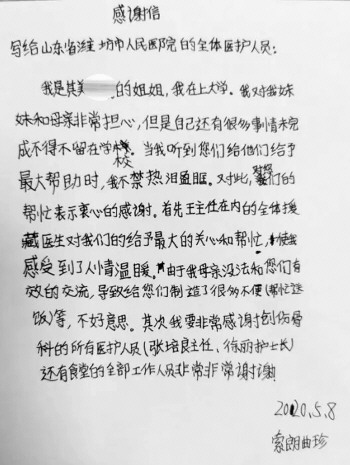 感谢信
写给山东省潍坊市人民医院的全体医护人员：
我是其美 的姐姐，我在上大学。我对我妹
妹和母亲非常担心，但是自己还有很多事情未完
成不得不留在学校。当我听到您们给他们给予
校
最大帮助时，我不禁热泪盈眶。对此，对您们的
帮忙表示衷心的感谢。首先王主任在内的全体援
藏医生对我们的给予最大的关心和帮忙，使我
感受到了人情温暖。由于我母亲没法和您们有
效的交流，导致给您们制造了很多不便(帮忙送
饭)等，不好意思。其次我要非常感谢创伤骨
科的所有医护人员(张培良主任、徐丽护士长)
还有食堂的全部工作人员非常非常谢谢!
2020.5.8
索朗曲珍